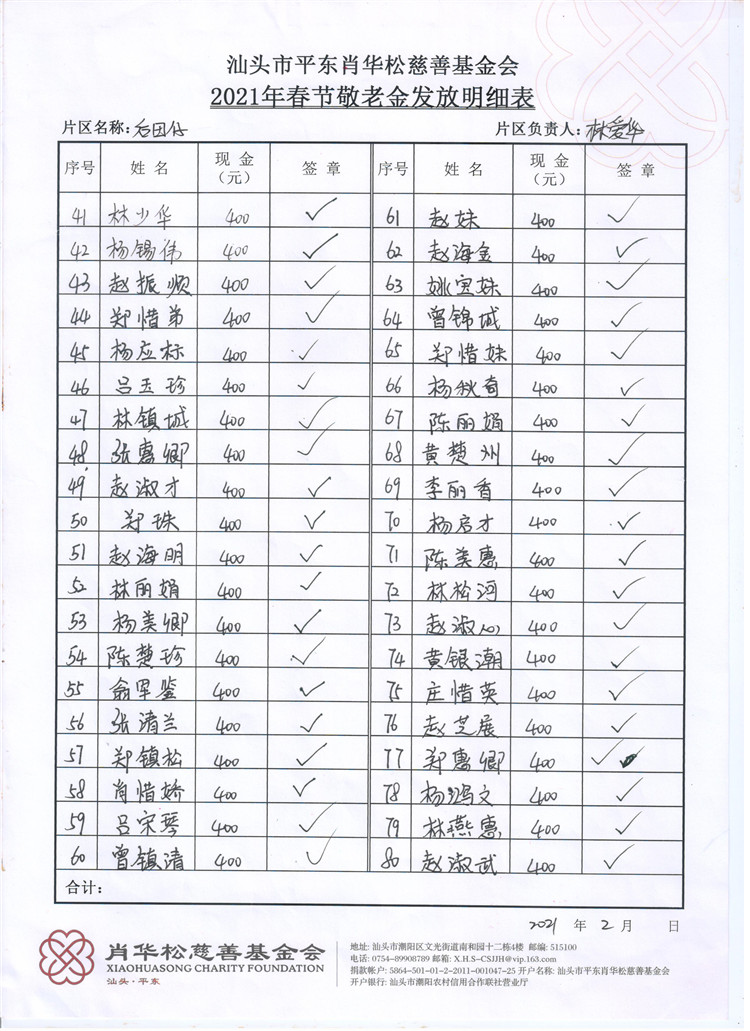 汕头市平东肖华松慈善基金会
2021年春节敬老金发放明细表
片区名称: 片区负责人: 林爱华
序号 姓名 现金(元) 签章 序号 姓名 现金(元) 签章
41 林少华 400 ✓ 61 赵妹 400 ✓
42 杨锡伟 400 ✓ 62 赵海金 400 ✓
43 赵振顺 400 ✓ 63 姚宝妹 400 ✓
44 郑惜弟 400 ✓ 64 曾锦城 400 ✓
45 杨应标 400 ✓ 65 郑惜妹 400 ✓
46 吕玉珍 400 ✓ 66 杨秋奇 400 ✓
47 林镇城 400 ✓ 67 陈丽娟 400 ✓
48 张惠卿 400 ✓ 68 黄楚州 400 ✓
49 赵淑才 400 ✓ 69 李丽香 400 ✓
50 郑珠 400 ✓ 70 杨启才 400 ✓
51 赵海明 400 ✓ 71 陈美惠 400 ✓
52 林丽娟 400 ✓ 72 林松河 400 ✓
53 杨美卿 400 ✓ 73 赵淑心 400 ✓
54 陈楚珍 400 ✓ 74 黄银潮 400 ✓
55 400 ✓ 75 庄惜英 400 ✓
56 张清兰 400 ✓ 76 赵芝展 400 ✓
57 郑镇松 400 ✓ 77 郑惠卿 400 ✓
58 肖惜娇 400 ✓ 78 杨鸿文 400 ✓
59 吕宋琴 400 ✓ 79 林燕惠 400 ✓
60 曾镇清 400 ✓ 80 赵淑试 400 ✓
合计:
2021 年 2 月 日
肖华松慈善基金会
XIAOHUASONG CHARITY FOUNDATION
汕头·平东
地址: 汕头市潮阳区文光街道南和园十二栋4楼 邮编: 515100
电话: 0754-89908789 邮箱: X.H.S-CSJJH@vip.163.com
捐款帐户: 5864-501-01-2-2011-001047-25 开户名称: 汕头市平东肖华松慈善基金会
开户银行: 汕头市潮阳农村信用合作联社营业厅